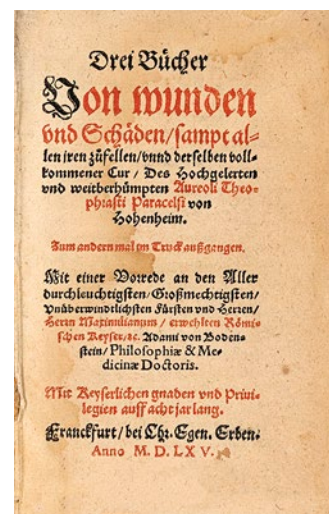 Drei Bücher
Von wunden
vnd Schäden/sampt al-
len jren zůfellen/vnnd derselben voll-
kommener Cur/Des Hochgelerten
vnd weitberhümpten Aureoli Theo-
phrasti Paracelsi von
Hohenheim.
Zum andern mal im Truck außgangen.
Mit einer Vorrede an den Aller
durchleuchtigsten/Großmechtigsten/
Vnüberwindtlichsten Fürsten vnd Herren/
Herrn Maximilianum/erwehlten Römi-
schen Keyser/ꝛc. Adami von Boden-
stein/Philosophiæ & Me-
dicinæ Doctoris.
Mit Keyserlichen gnaden vnd Priui-
legien auff acht jar lang.
Franckfurt/bei Chr. Egen. Erben.
Anno M. D. LXV.